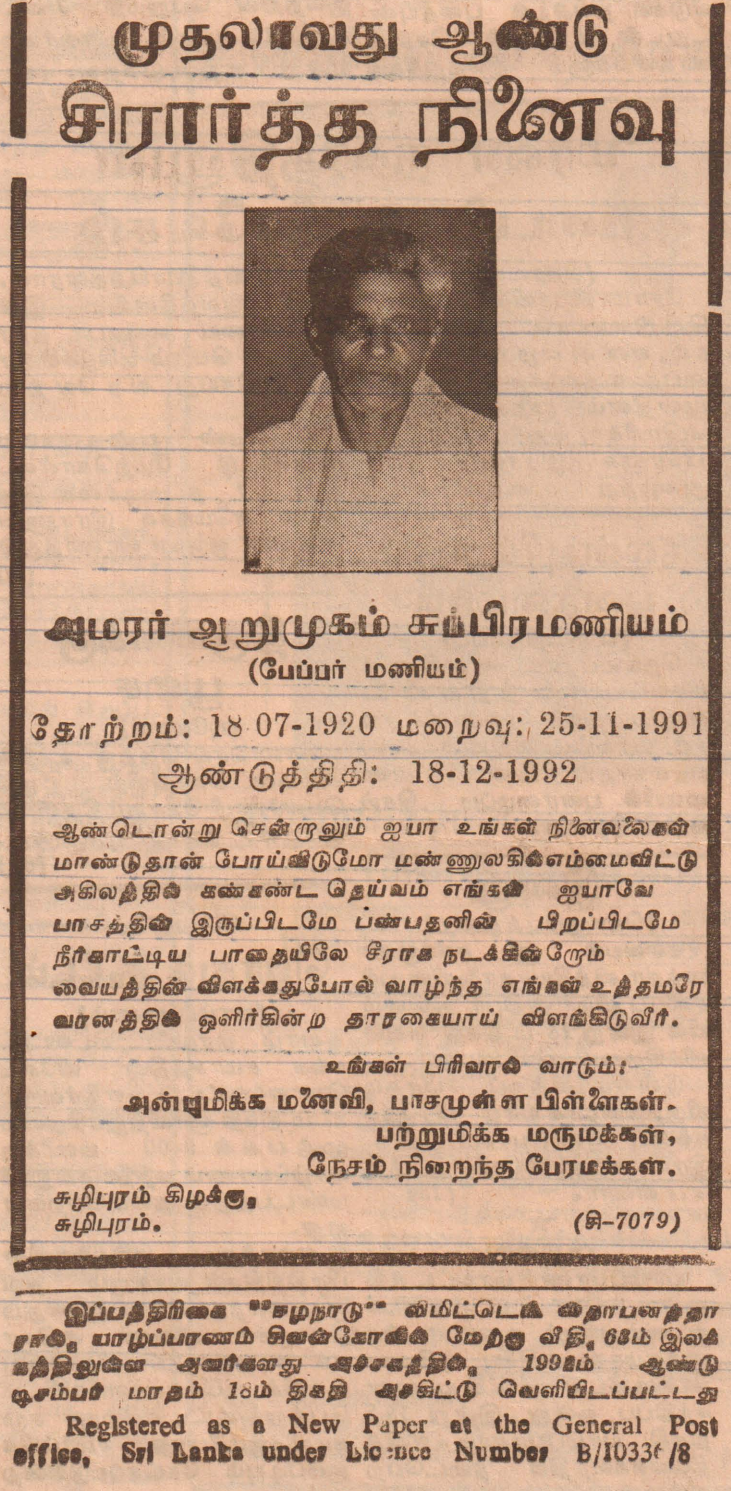 முதலாவது ஆண்டு
சிரார்த்த நினைவு
அமரர் ஆறுமுகம் சுப்பிரமணியம்
(பேப்பர் மணியம்)
தோற்றம்: 18 07-1920 மறைவு: 25-11-1991
ஆண்டுத்திதி: 18-12-1992
ஆண்டொன்று சென்றாலும் ஐயா உங்கள் நினைவலைகள்
மாண்டுதான் போய்விடுமோ மண்ணுலகில்எம்மைவிட்டு
அகிலத்தில் கண்கண்ட தெய்வம் எங்கள் ஐயாவே
பாசத்தின் இருப்பிடமே பண்பதனின் பிறப்பிடமே
நீர்காட்டிய பாதையிலே சீராக நடக்கின்றோம்
வையத்தின் விளக்கதுபோல் வாழ்ந்த எங்கள் உத்தமரே
வானத்தில் ஒளிர்கின்ற தாரகையாய் விளங்கிடுவீர்.
உங்கள் பிரிவால் வாடும்:
அன்புமிக்க மனைவி, பாசமுள்ள பிள்ளைகள்.
பற்றுமிக்க மருமக்கள்,
நேசம் நிறைந்த பேரமக்கள்.
சுழிபுரம் கிழக்கு,
சுழிபுரம்.
(சி-7079)
இப்பத்திரிகை "ஈழநாடு" லிமிட்டெட் ஸ்தாபனத்தா
ரால், யாழ்ப்பாணம் சிவன்கோவில் மேற்கு வீதி, 63ம் இலக்
கத்திலுள்ள அவர்களது அச்சகத்தில், 1992ம் ஆண்டு
டிசம்பர் மாதம் 18ம் திகதி அச்சிட்டு வெளியிடப்பட்டது
Reglstered as a New Paper at the General Post
office, Sri Lanka under Licence Number